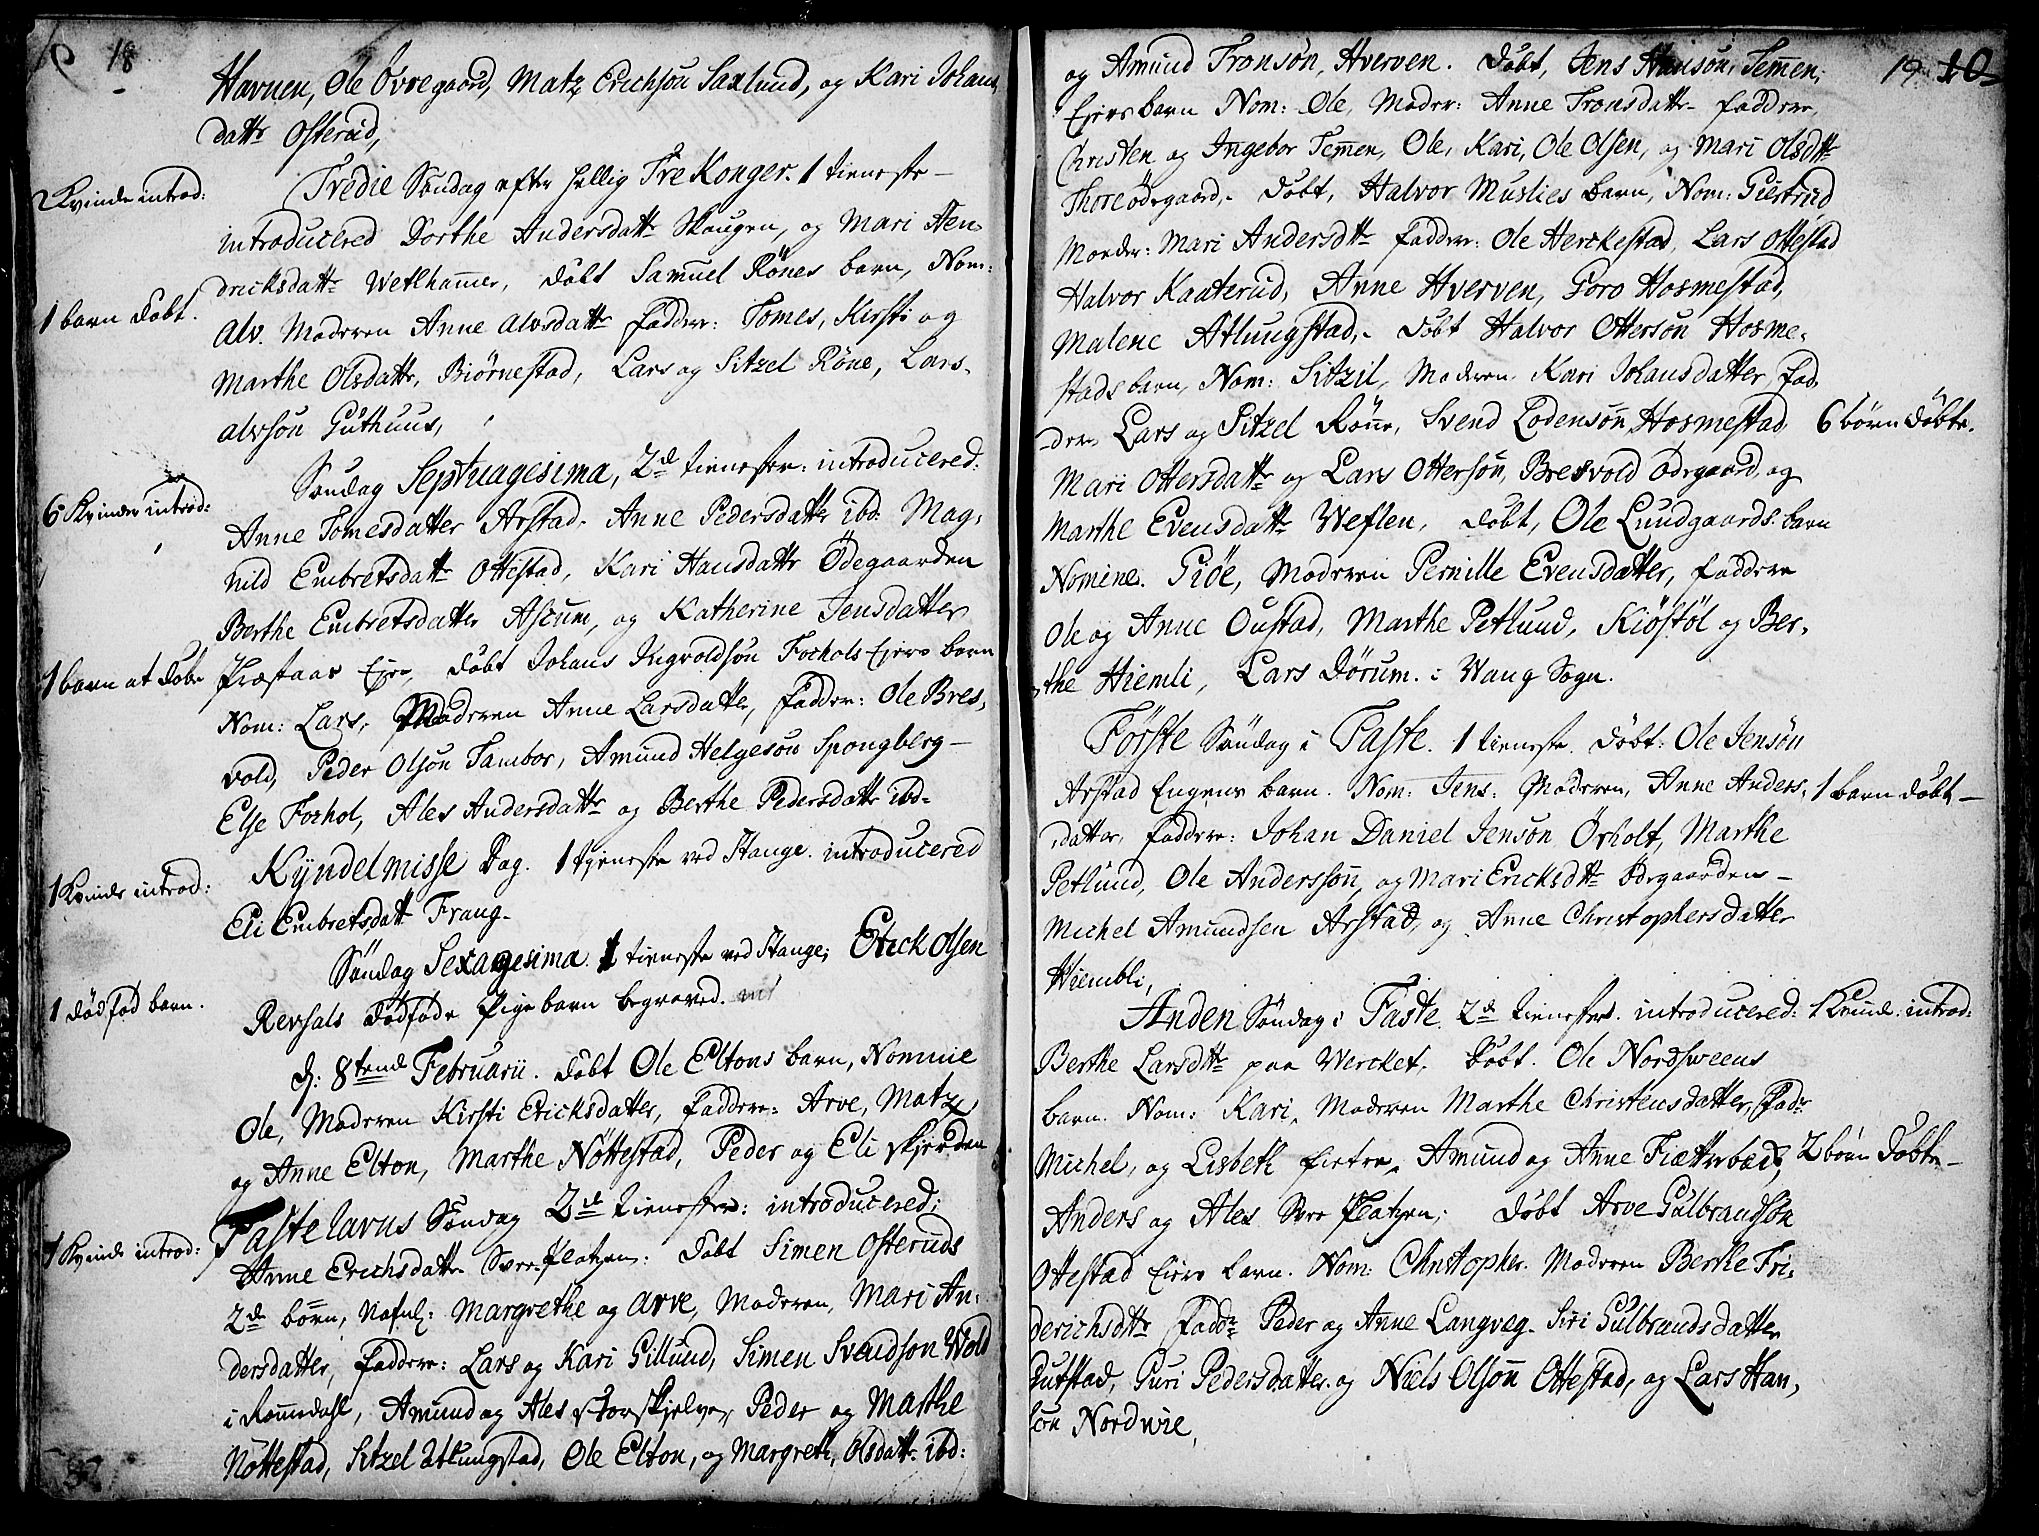 18
Havnen, Ole Övregaard, Matz Erichson Saxlund, og Kari Johans
datter Osterud,
2 Kvinde introd:
Tredie Søndag efter hellig Tre Konger. 1 tieneste -
introducered Dorthe Andersdattr Skaugen, og Mari Hen
dricksdattr Wetlhamer, döbt Samuel Rönes barn, Nom:
1 barn döbt.
Alv. Moderen Anne Alvsdattr Faddere: Tomes, Kirsti og
Marthe Olsdattr, Biørnestad, Lars og Sitzel Röne, Lars
alvsøn Guthuus,
Søndag Septuagesima, 2de tienester: introducered:
6 Kvinder introd:
Anne Tomesdatter Arstad. Anne Pedersdattr ibd. Mag,
nild Embretsdattr Ottestad, Kari Hansdattr Ödegaarden
Berthe Embretsdatter Ascum, og Katherine Jensdatter
1 barn at döbe
Præstaar Eje, döbt Johans Ingvoldsøn Forhols Ejers barn
Nom: Lars, Moderen Anne Larsdatter, Fadder: Ole Bres,
vold, Peder Olsøn Tambor, Amund Helgesøn Spongberg -
Else Forhol, Ales Andersdattr og Berthe Pedersdattr ibd-
Kyndelmisse Dag. 1 tjeneste ved Stange. introducered
1 Kvinde introd:
Eli Embretsdattr Frang.
Søndag Sexagesima. 1 tieneste ved Stange; Erick Olsen
1 död föd barn.
Revsals dödföde Pige barn begraved.
d: 8tende Februarii. döbt Ole Eltons barn, Nomine
Ole, Moderen Kirsti Ericksdatter, Faddere: Arve, Matz
og Anne Elton, Marthe Nöttestad, Peder og Eli Skjerden
Fastelavns Søndag 2de tienester: introducered:
1 Kvinde introd:
Anne Erichsdatter Svee-Platzen: döbt Simen Osteruds
2de børn, Nafnl: Margrethe og Arve, Moderen, Mari An,
dersdatter, Faddere: Lars og Kari Gillund, Simen Svendson Wold
i Romedahl, Amund og Ales Storskjelve, Peder og Marthe
Nöttestad, Sitzel Atlungstad, Ole Elton, og Margrethe, Olsdattr ibd:
19 10
og Amund Tronsøn, Hverven. döbt, Jens Hansøn, Temen,
Ejers barn Nom: Ole, Moder: Anne Tronsdatter Faddere,
Christen og Ingebor Temen, Ole, Kari, Ole Olsen, og Mari Olsdttr
Thoreödegaard,- döbt, Halvor Muslies barn, Nom: Giertrud
Moeder: Mari Andersdttr Fadder: Ole Herckestad, Lars Ottestad
Halvor Kaaterud, Anne Hverven, Goro Hosmestad,
Malene Atlungstad,- döbt Halvor Ottersøn Hosme,
stads barn, Nom: Sitzil, Moderen Kari Johansdatter, Fad,
dere Lars og Sitzel Rönne, Svend Lodensøn Hosmestad
6 börn döbte.
Mari Ottersdattr og Lars Ottersøn, Bresvold ödegaard, og
Marthe Evensdattr Weflen, döbt, Ole Lundgaards barn
Nomine. Giöe, Moderen Pernille Evensdatter, Faddere
Ole og Anne Oustad, Marthe Petlund, Kiöstöl og Ber,
the Hiemli, Lars Dörum. i Wang Sogn.
Förste Søndag i Faste. 1 tieneste. döbt: Ole Jensøn
Arstad Engens barn. Nom: Jens: Moderen, Anne Anders,
1 barn döbt -
datter, Faddere: Johan Daniel Jensøn Örholt, Marthe
Petlund, Ole Anderssøn, og Mari Ericksdttr Ödegaarden -
Michel Amundsen Arstad, og Anne Christophersdatter
Hiembli,
Anden Søndag i Faste. 2de tienester. introducered:
1 Kvinde: introd:
Berthe Larsdttr paa Wercket. Döbt. Ole Nordsveens
barn. Nom: Kari, Moderen Marthe Christensdatter, Fadr
Michel, og Lisbeth Fietre, Amund og Anne Fiætterbæck,
2 börn döbte -
Anders og Ales Svee Platzen; döbt Arve Gulbrandsøn
Ottestad Ejers barn. Nom: Christopher. Moderen Berthe Fri,
derichsdttr Faddr Peder og Anne Langveg. Siri Gulbrandsdatter
Gutstad, Guri Pedersdatter og Niels Olsøn Ottestad, og Lars Han,
søn Nordvie,